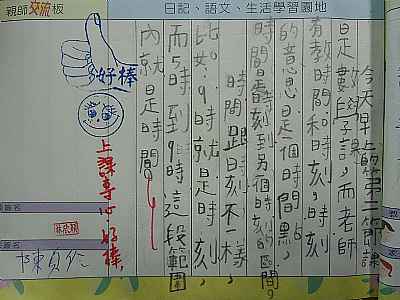 親師交流板
日記、語文、生活學習園地
好棒
今天早上的第二節課
是數學課,而老師
有教時間和時刻,時刻
的意思是一個時間點,
時間是時刻到另個時刻的區間,
時間跟時刻不一樣,
比如:9時就是時刻,
而5時到9時這段範圍
內就是時間。
上課專心好棒
簽名
簽名